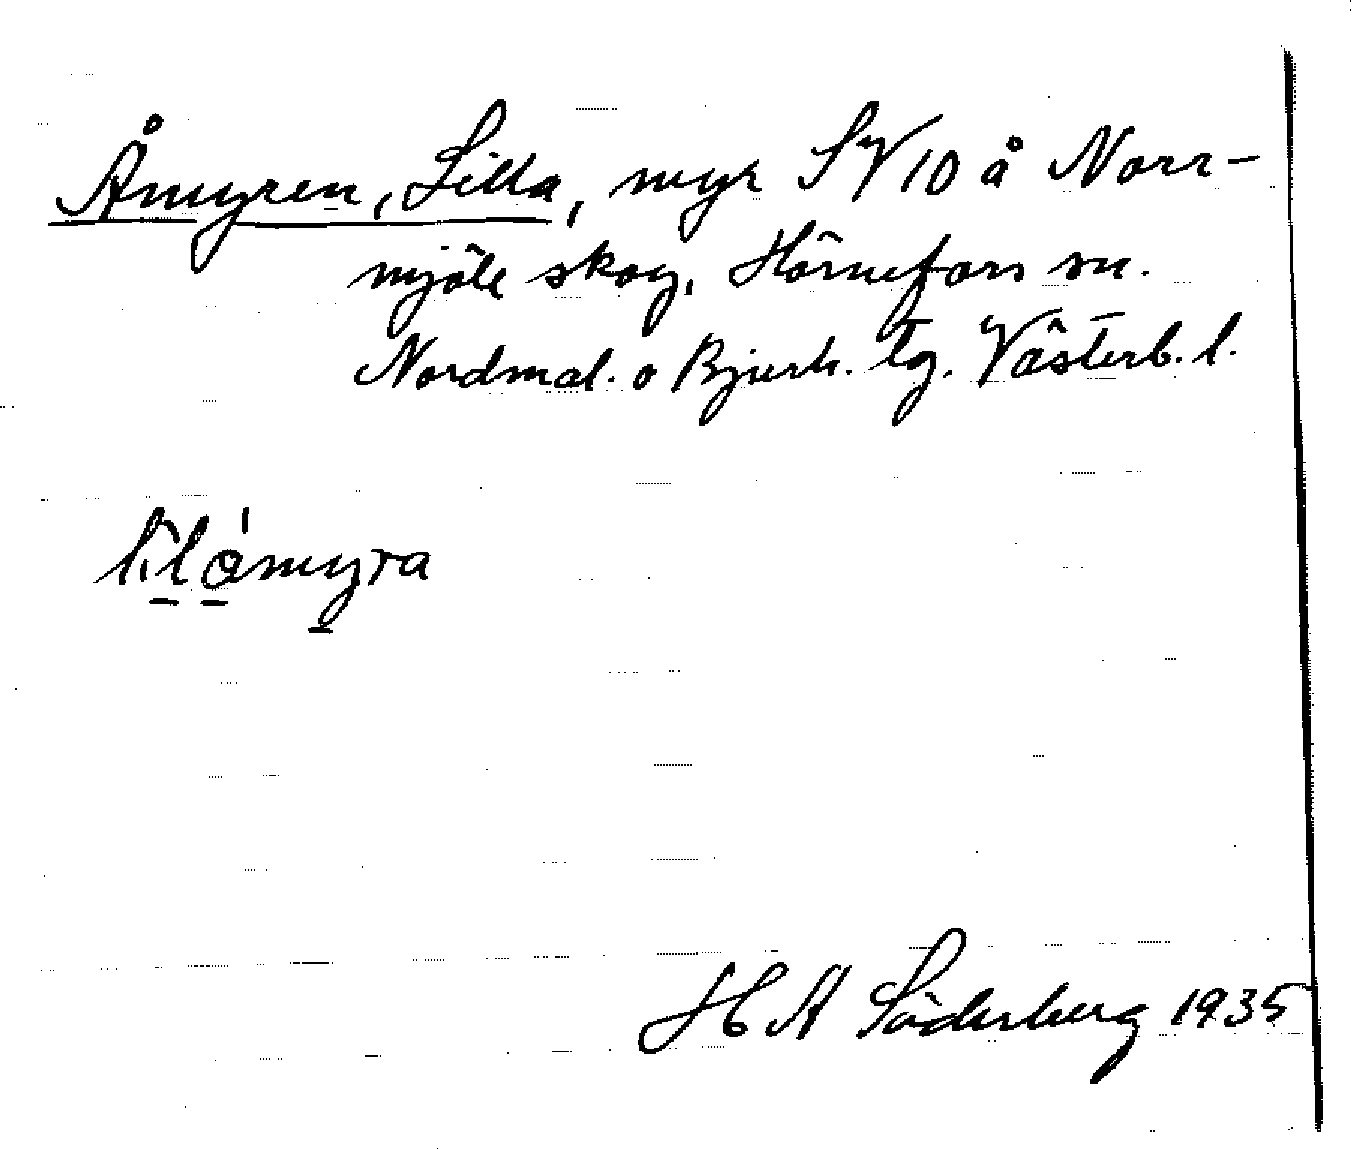 Åmyren, Lilla, myr SV 10 å Norr-
mjöle skog, Hörnefors sn.
Nordmal. o Bjurh. tg. Västerb. l.
lilåmyra
H A Söderberg 1935